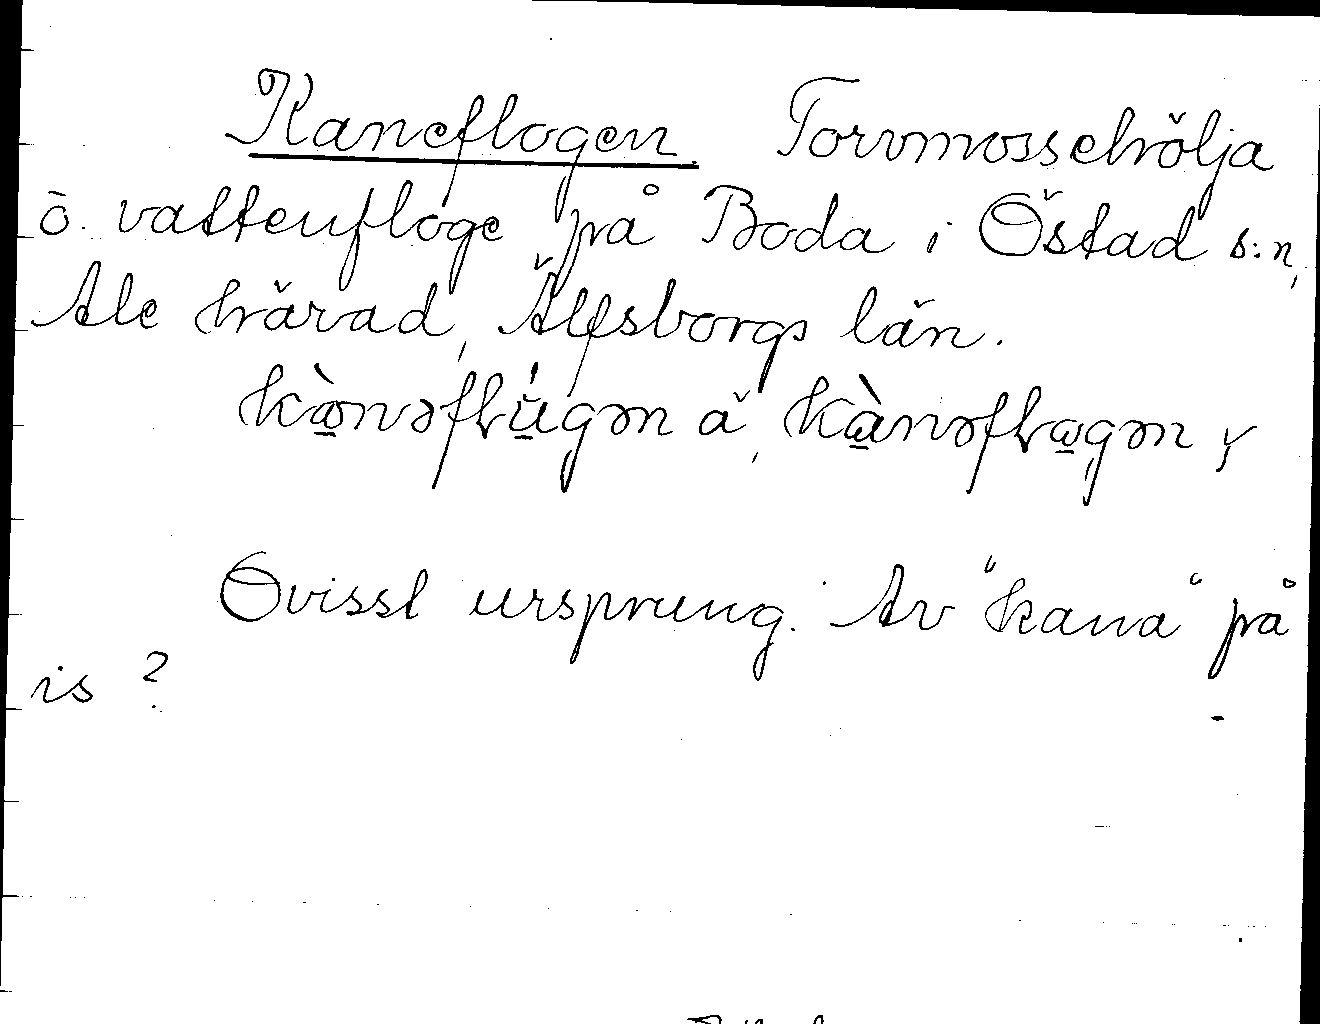 Kaneflogen. Torvmossehölja
o. vattenfloge på Boda i Östad s:n,
Ale härad, Älfsborgs län.
kànəflu̇gən a, kànəflogən y
Ovisst ursprung. Av "kana" på
is ?